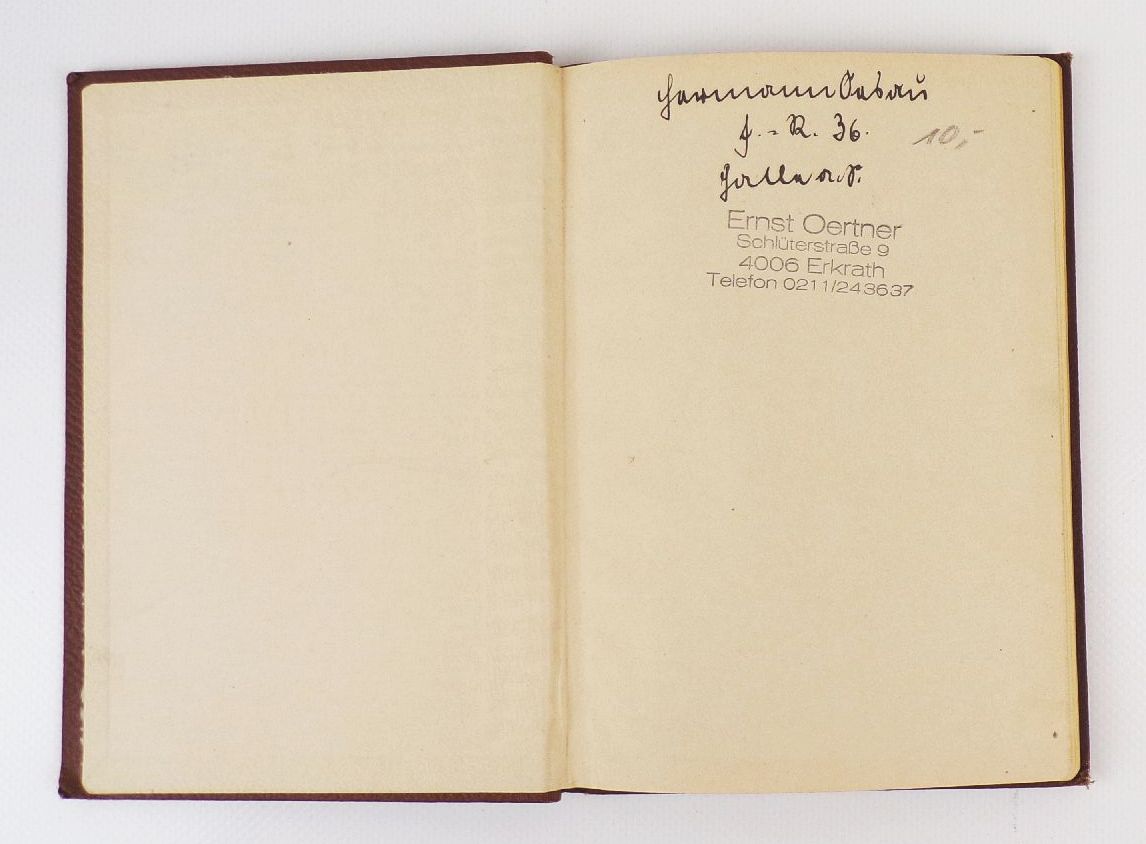 Hermann
F.-R. 36.
10,-
Halle a. S.
Ernst Oertner
Schlüterstraße 9
4006 Erkrath
Telefon 0211/243637